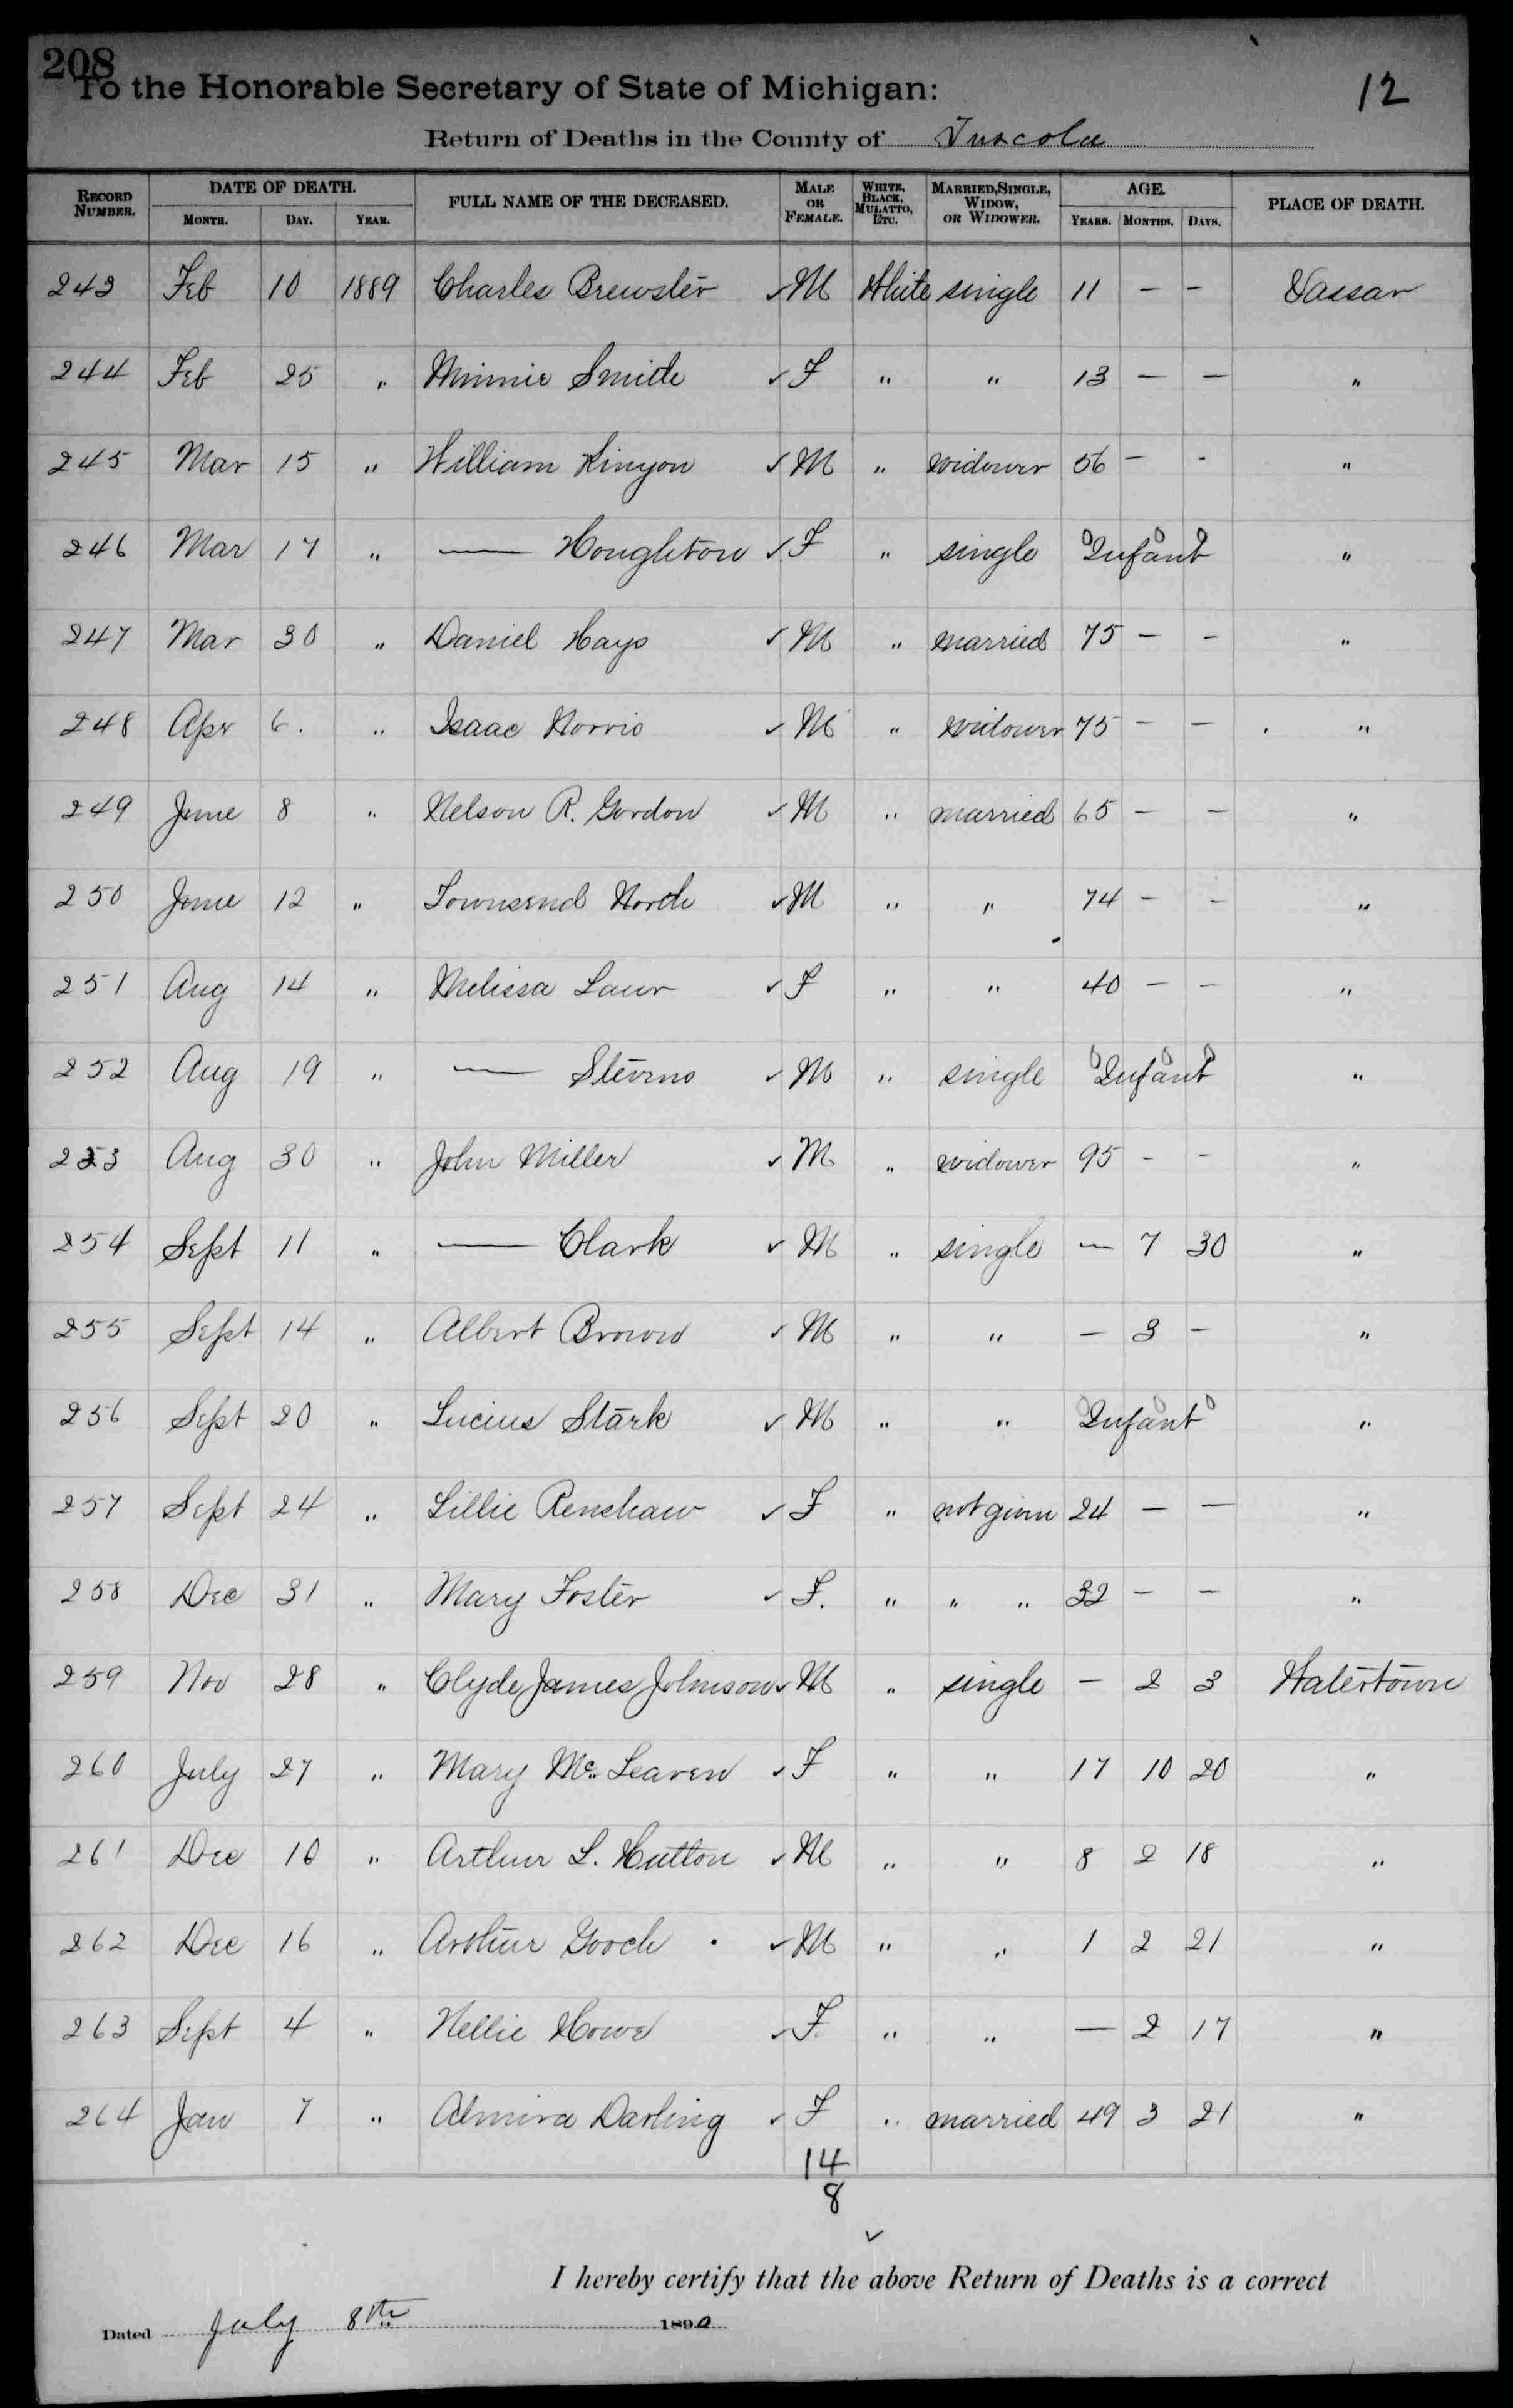 208
To the Honorable Secretary of State of Michigan:
12
Return of Deaths in the County of Tuscola
RECORD NUMBER. DATE OF DEATH. MONTH. DAY. YEAR. FULL NAME OF THE DECEASED. MALE OR FEMALE. WHITE, BLACK, MULATTO, ETC. MARRIED, SINGLE, WIDOW, OR WIDOWER. AGE. YEARS. MONTHS. DAYS. PLACE OF DEATH.
243 Feb 10 1889 Charles Brewster ✓ M White single 11 — - Vassar
244 Feb 25 " Minnie Smith ✓ F " " 13 — — "
245 Mar 15 " William Kinyon ✓ M " widower 56 — - "
246 Mar 17 " —— Houghton ✓ F " single 0 0 0 Infant "
247 Mar 30 " Daniel Hays ✓ M " married 75 — - "
248 Apr 6. " Isaac Norris ✓ M " widower 75 — — "
249 June 8 " Nelson R. Gordon ✓ M " married 65 — — "
250 June 12 " Townsend North ✓ M " " 74 — - "
251 Aug 14 " Melissa Laur ✓ F " " 40 — — "
252 Aug 19 " —— Stevens ✓ M " single 0 0 0 Infant "
253 Aug 30 " John Miller ✓ M " widower 95 - - "
254 Sept 11 " —— Clark ✓ M " single — 7 30 "
255 Sept 14 " Albert Brown ✓ M " " — 3 — "
256 Sept 20 " Lucius Stark ✓ M " " 0 0 0 Infant "
257 Sept 24 " Lillie Renshaw ✓ F " not given 24 — — "
258 Dec 31 " Mary Foster ✓ F. " " " 32 — — "
259 Nov 28 " Clyde James Johnson ✓ M " single — 2 3 Watertown
260 July 27 " Mary Mc. Leaven ✓ F " " 17 10 20 "
261 Dec 10 " Arthur L. Hutton ✓ M " " 8 2 18 "
262 Dec 16 " Arthur Gooch ✓ M " " 1 2 21 "
263 Sept 4 " Nellie Howe ✓ F. " " — 2 17 "
264 Jan 7 " Almira Darling ✓ F " married 49 3 21 "
14
8
✓
I hereby certify that the above Return of Deaths is a correct
Dated July 8th 1890